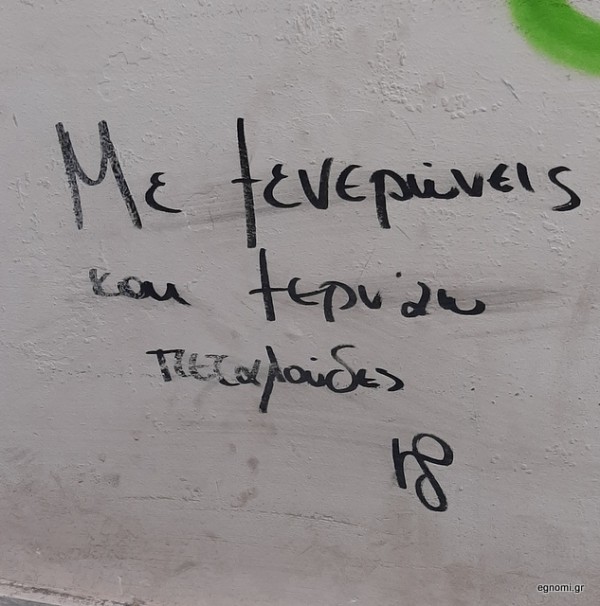 Με ξενερώνεις
και ξερνάω
πεταλούδες
egnomi.gr